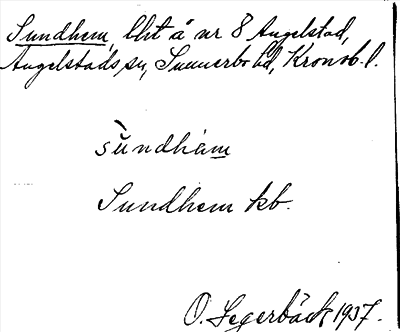 Sundhem, lht å nr 8 Angelstad,
Angelstads sn, Sunnerbo hd, Kronob. l.
sùndhàm
Sundhem kb.
O. Segerbäck 1937.